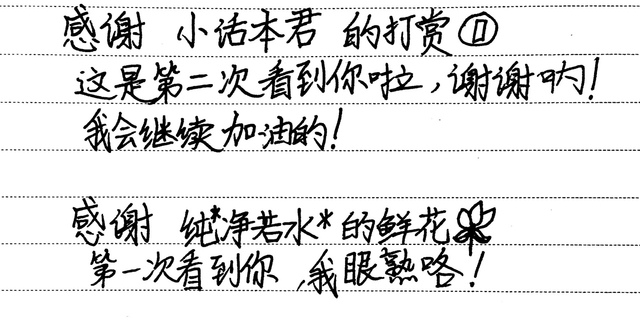 感谢 小话本君 的打赏
这是第二次看到你啦，谢谢哟！
我会继续加油的！
感谢 纯*净若水*的鲜花
第一次看到你，我眼熟咯！